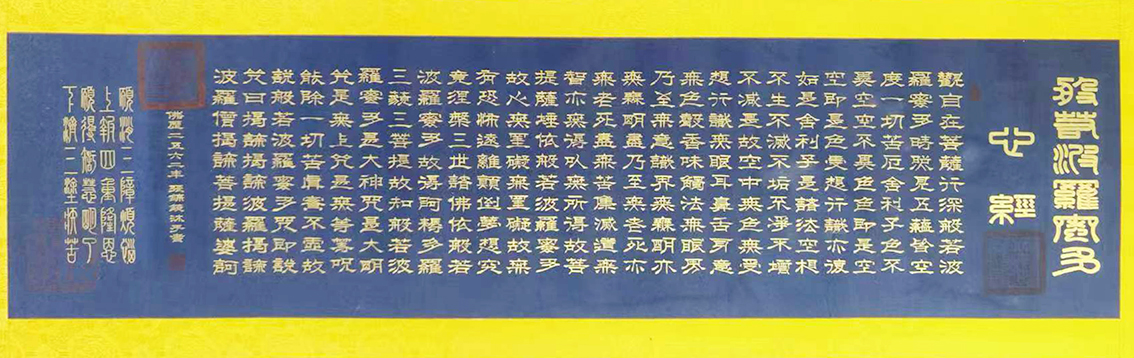 般若波羅蜜多
心經
觀自在菩薩行深般若波
羅蜜多時照見五蘊皆空
度一切苦厄舍利子色不
異空空不異色色即是空
空即是色受想行識亦復
如是舍利子是諸法空相
不生不滅不垢不淨不增
不減是故空中無色無受
想行識無眼耳鼻舌身意
無色聲香味觸法無眼界
乃至無意識界無無明亦
無無明盡乃至無老死亦
無老死盡無苦集滅道無
智亦無得以無所得故菩
提薩埵依般若波羅蜜多
故心無罣礙無罣礙故無
有恐怖遠離顛倒夢想究
竟涅槃三世諸佛依般若
波羅蜜多故得阿耨多羅
三藐三菩提故知般若波
羅蜜多是大神咒是大明
咒是無上咒是無等等咒
能除一切苦真實不虛故
說般若波羅蜜多咒即說
咒曰揭諦揭諦波羅揭諦
波羅僧揭諦菩提薩婆訶
佛曆二五六二年
願消三障煩惱
上報四重隆恩
願得智慧明了
下濟三塗疾苦